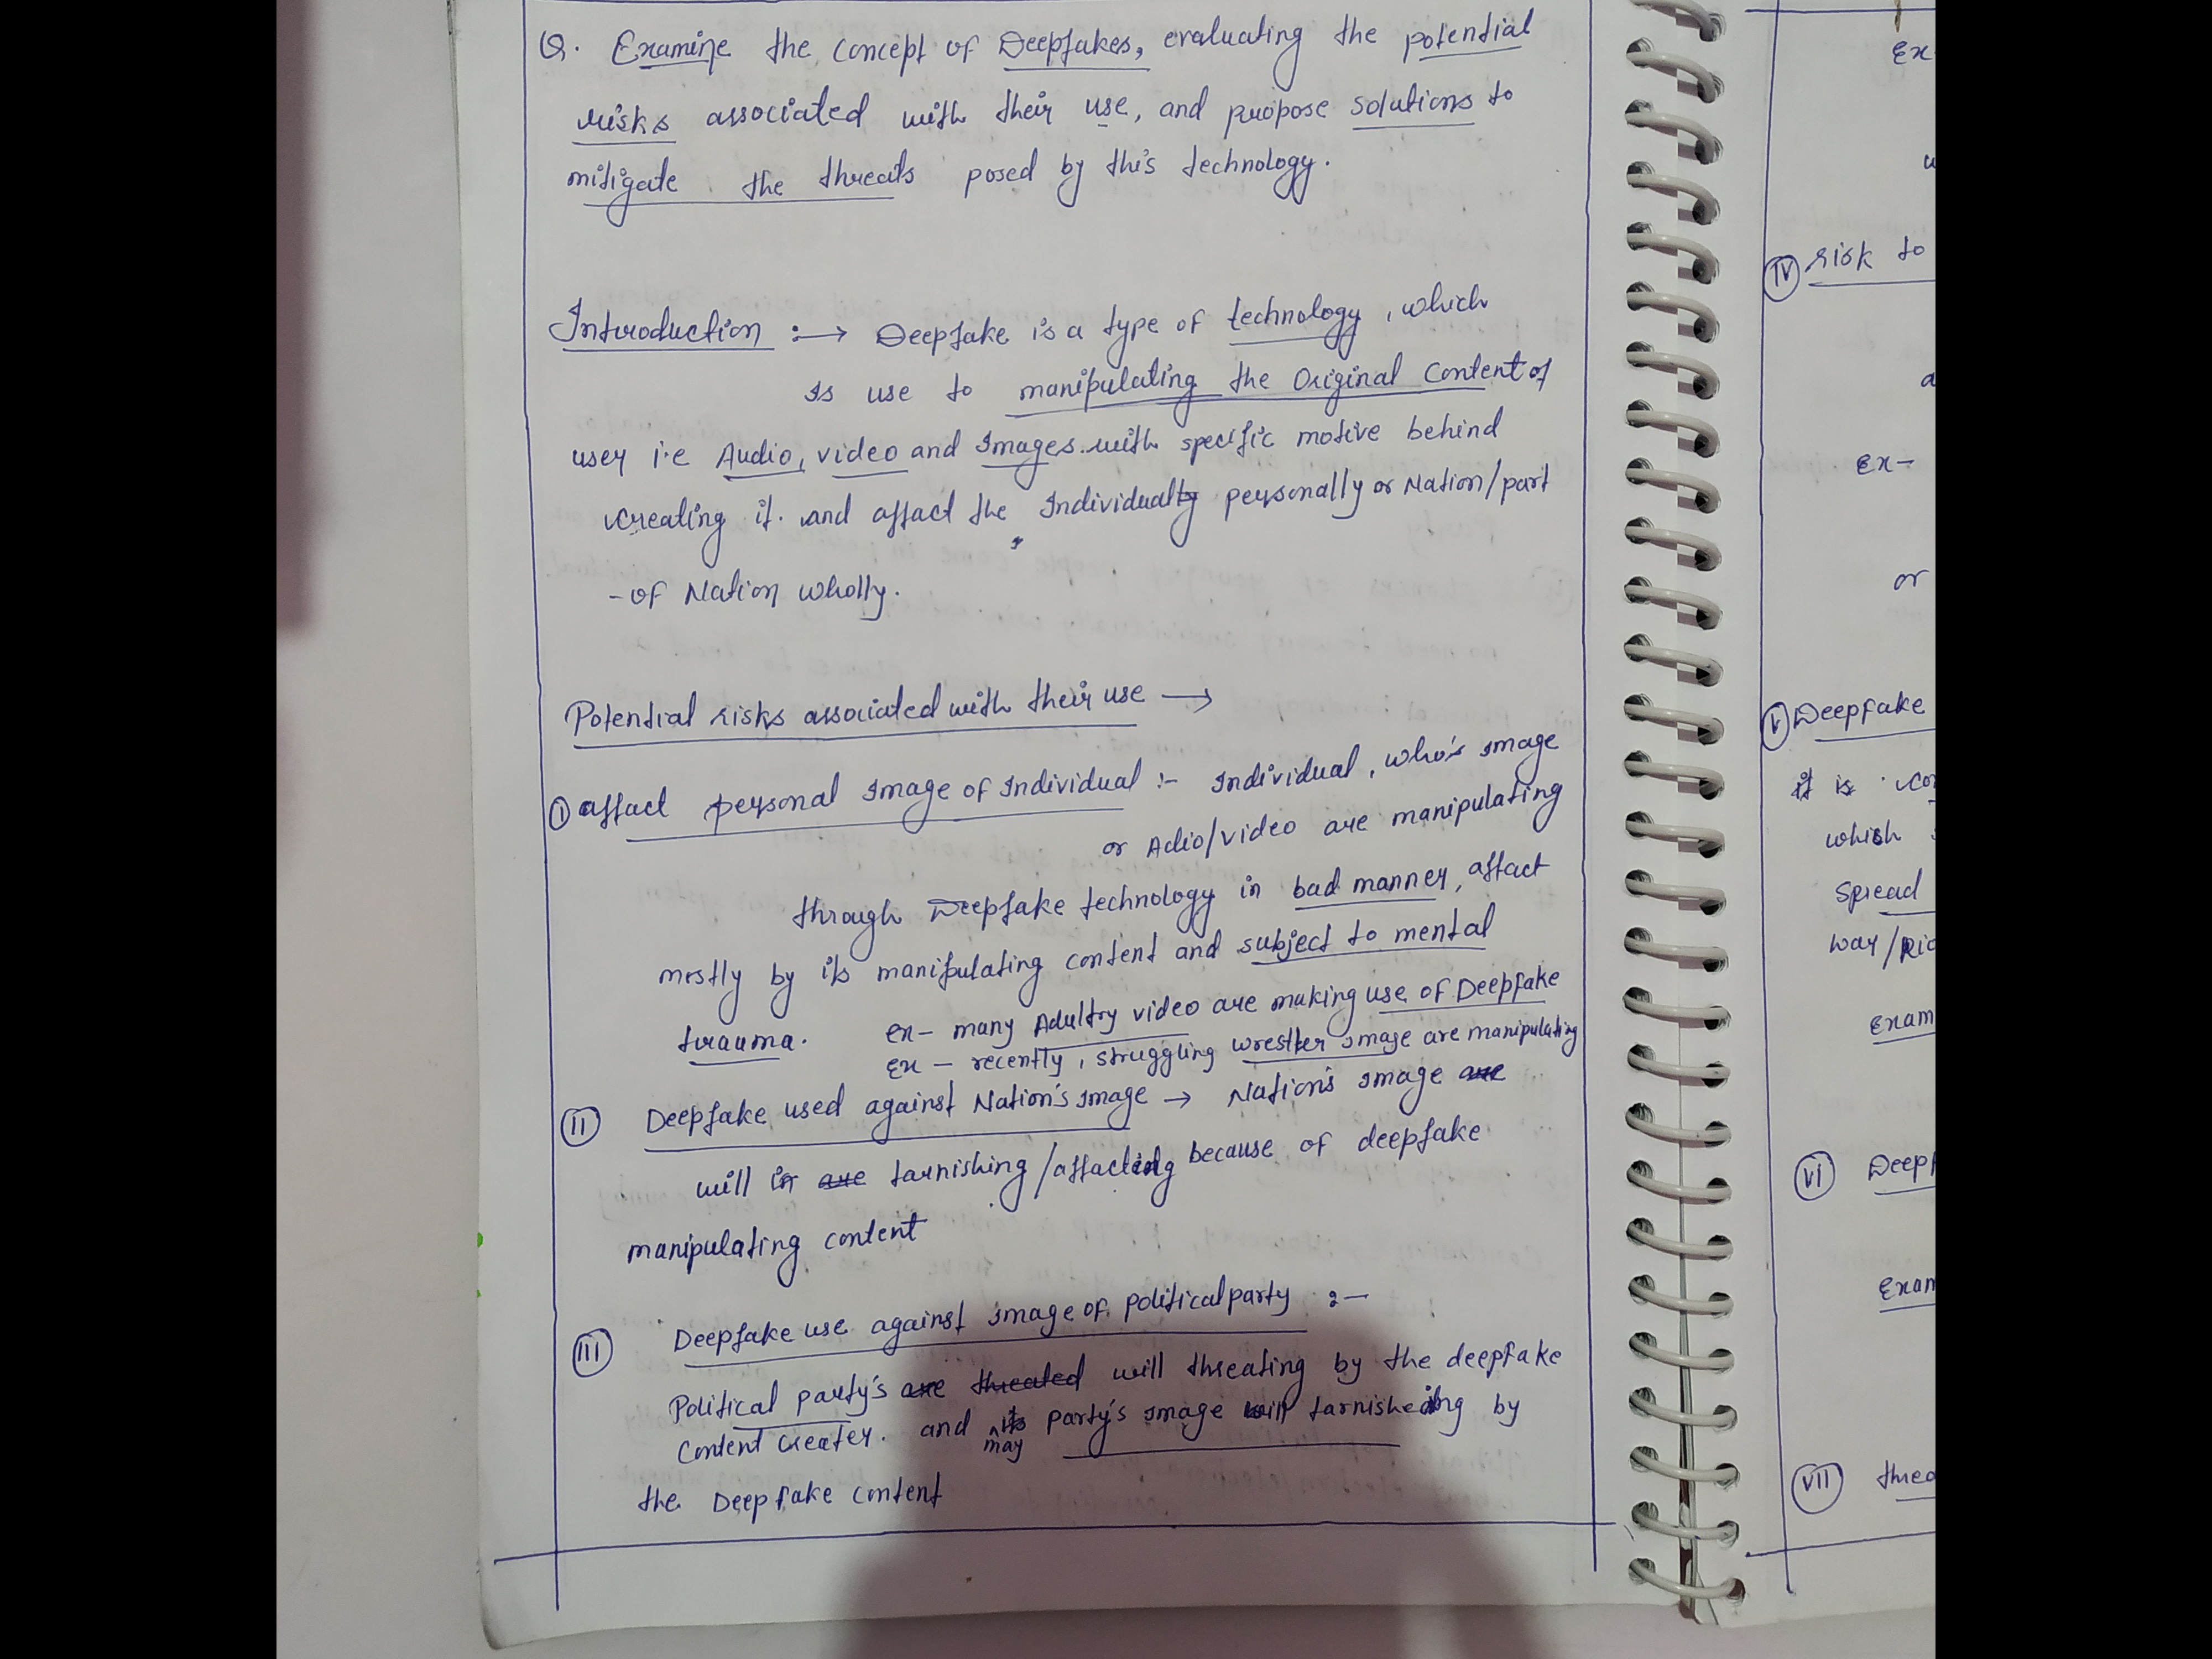 Q. Examine the concept of Deepfakes, evaluating the potential
risks associated with their use, and propose solutions to
mitigate the threats posed by this technology.
Introduction :→ Deepfake is a type of technology, which
is use to manipulating the Original Content of
user i.e Audio, video and Images. with specific motive behind
creating it. and affact the Individually personally or Nation/part
-of Nation wholly.
Potential risks associated with their use →
① affact personal Image of Individual :- Individual, who's image
or Adio/video are manipulating
through Deepfake technology in bad manner, affact
mostly by its manipulating content and subject to mental
trauma. ex- many Adultry video are making use of Deepfake
ex - recently, struggling wrestler image are manipulating
(II) Deepfake used against Nation's image → Nation's image are
will in are tarnishing/affacting because of deepfake
manipulating content
(III) Deepfake use against image of political party :-
Political party's are threated will threating by the deepfake
Content creater. and its may party's image will tarnisheding by
the Deepfake content
Ex-
(IV) risk to
Ex-
or
(V) Deepfake
it is
which
spread
way/
Exam
(VI) Deepf
Exam
(VII) threa